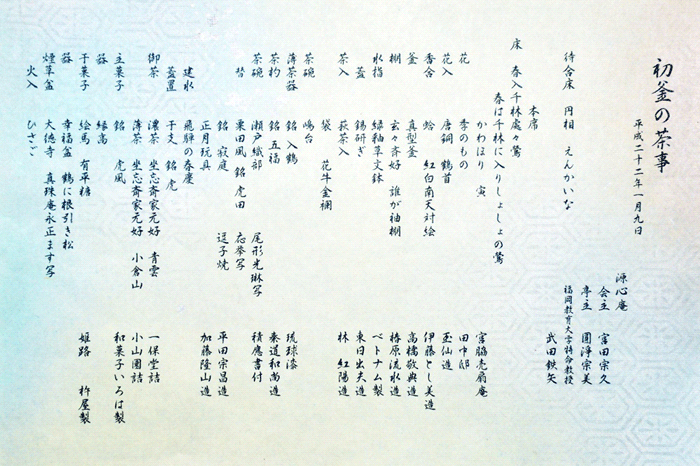 初釜の茶事
平成二十二年一月九日
源心庵
会主 宮田宗久
亭主 圓淨宗美
福岡教育大学特命教授
武田鉄矢
待合床 円相 えんかいな
本席
床 春入千林處々鶯
春は千林に入りしょしょの鶯
かわほり 寅 宮脇売扇庵
花 季のもの 田中邸
花入 唐銅 鶴首 玉仙造
香合 蛤 紅白南天対絵 伊藤とし美造
釜 真型釜 高橋敬典造
棚 玄々斎好 誰が袖棚 椿原流水造
水指 緑釉草文鉢 ベトナム製
蓋 錫研ぎ 東日出夫造
茶入 萩茶入 林 紅陽造
袋 花牛金襴
茶碗 嶋台
薄茶器 銘 入鶴 琉球漆
茶杓 銘 五福 秦道和尚造
茶碗 瀬戸織部 尾形光琳写 積應書付
替 粟田風 銘 虎田 応挙写 平田宗昌造
銘 寂庭 逗子焼
正月玩具 加藤隆山造
建水 飛騨の春慶
蓋置 干支 銘 虎
御茶 濃茶 坐忘斎家元好 青雲 一保堂詰
薄茶 坐忘斎家元好 小倉山 小山園詰
主菓子 銘 虎風 和菓子いろは製
器 縁高
干菓子 絵馬 有平糖 姫路 杵屋製
器 幸福盆 鶴に根引き松
煙草盆 大徳寺 真珠庵永正ます写
火入 ひさご